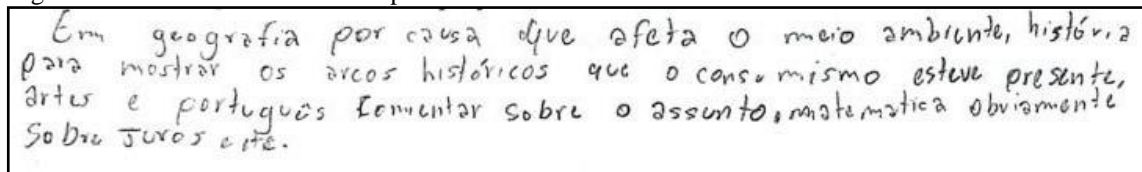 Em geografia por causa que afeta o meio ambiente, história
para mostrar os arcos históricos que o consumismo esteve presente,
artes e português comentar sobre o assunto, matematica obviamente
sobre Juros e etc.